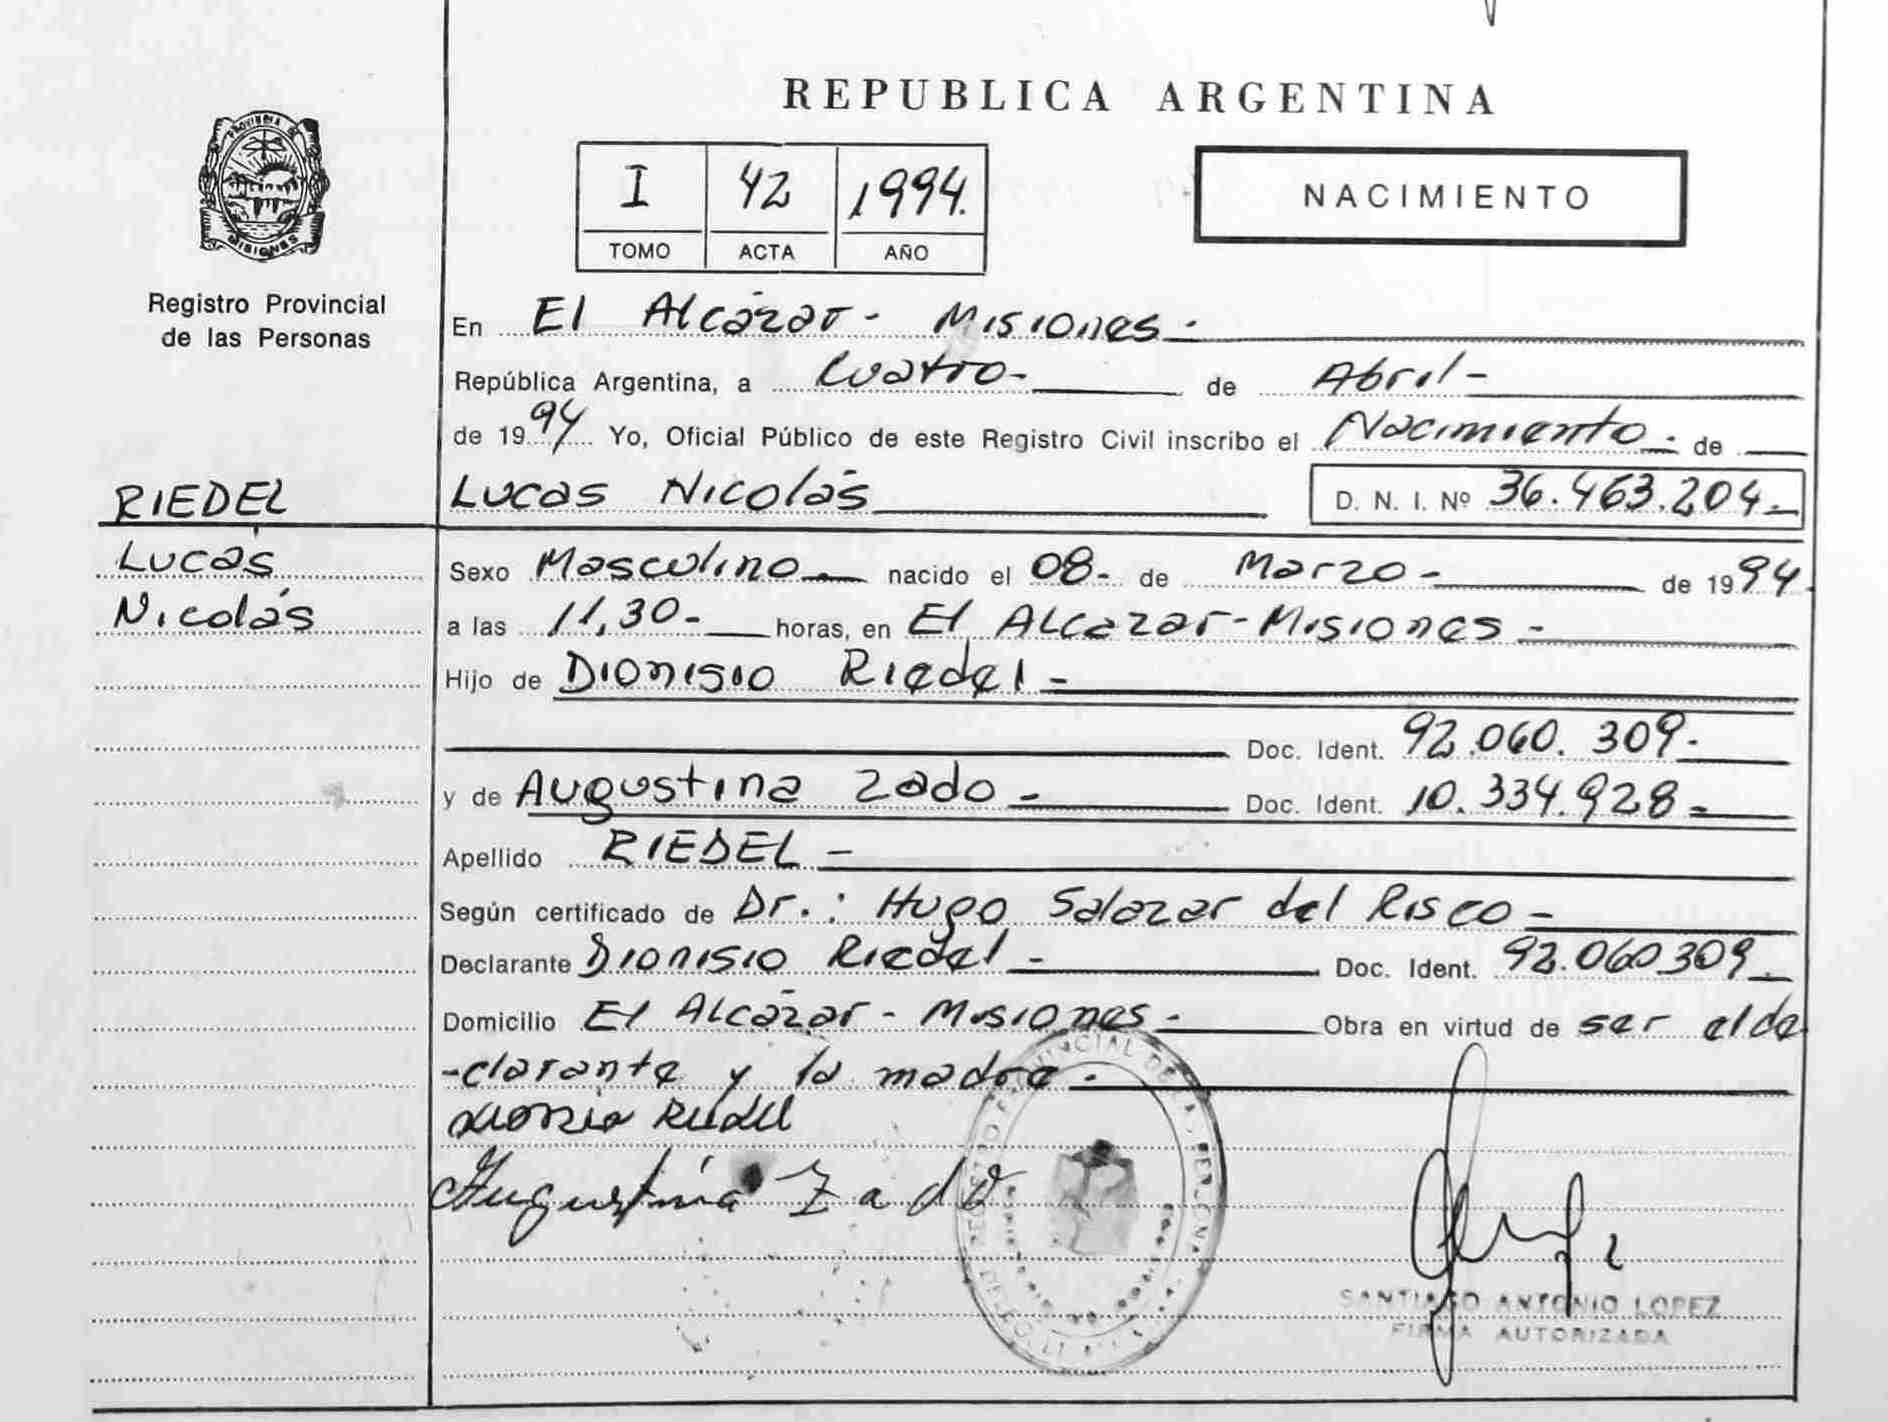 REPUBLICA ARGENTINA
PROVINCIA DE
MISIONES
Registro Provincial
de las Personas
I 42 1994.
TOMO ACTA AÑO
NACIMIENTO
En El Alcázar - Misiones -
República Argentina, a Cuatro - de Abril -
de 1994 Yo, Oficial Público de este Registro Civil inscribo el Nacimiento - de
RIEDEL
Lucas Nicolás D. N. I. Nº 36.463.204 -
Lucas
Sexo Masculino - nacido el 08 - de Marzo - de 1994
Nicolás
a las 11,30 - horas, en El Alcazar - Misiones -
Hijo de Dionisio Riedel -
Doc. Ident. 92.060.309 -
y de Augustina Zado - Doc. Ident. 10.334.928 -
Apellido RIEDEL -
Según certificado de Dr.: Hugo Salazar del Risco -
Declarante Dionisio Riedel - Doc. Ident. 92.060309 -
Domicilio El Alcázar - Misiones - Obra en virtud de ser el de
-clarante y la madre -
Riedel
Augustina Zado
SANTIAGO ANTONIO LOPEZ
FIRMA AUTORIZADA